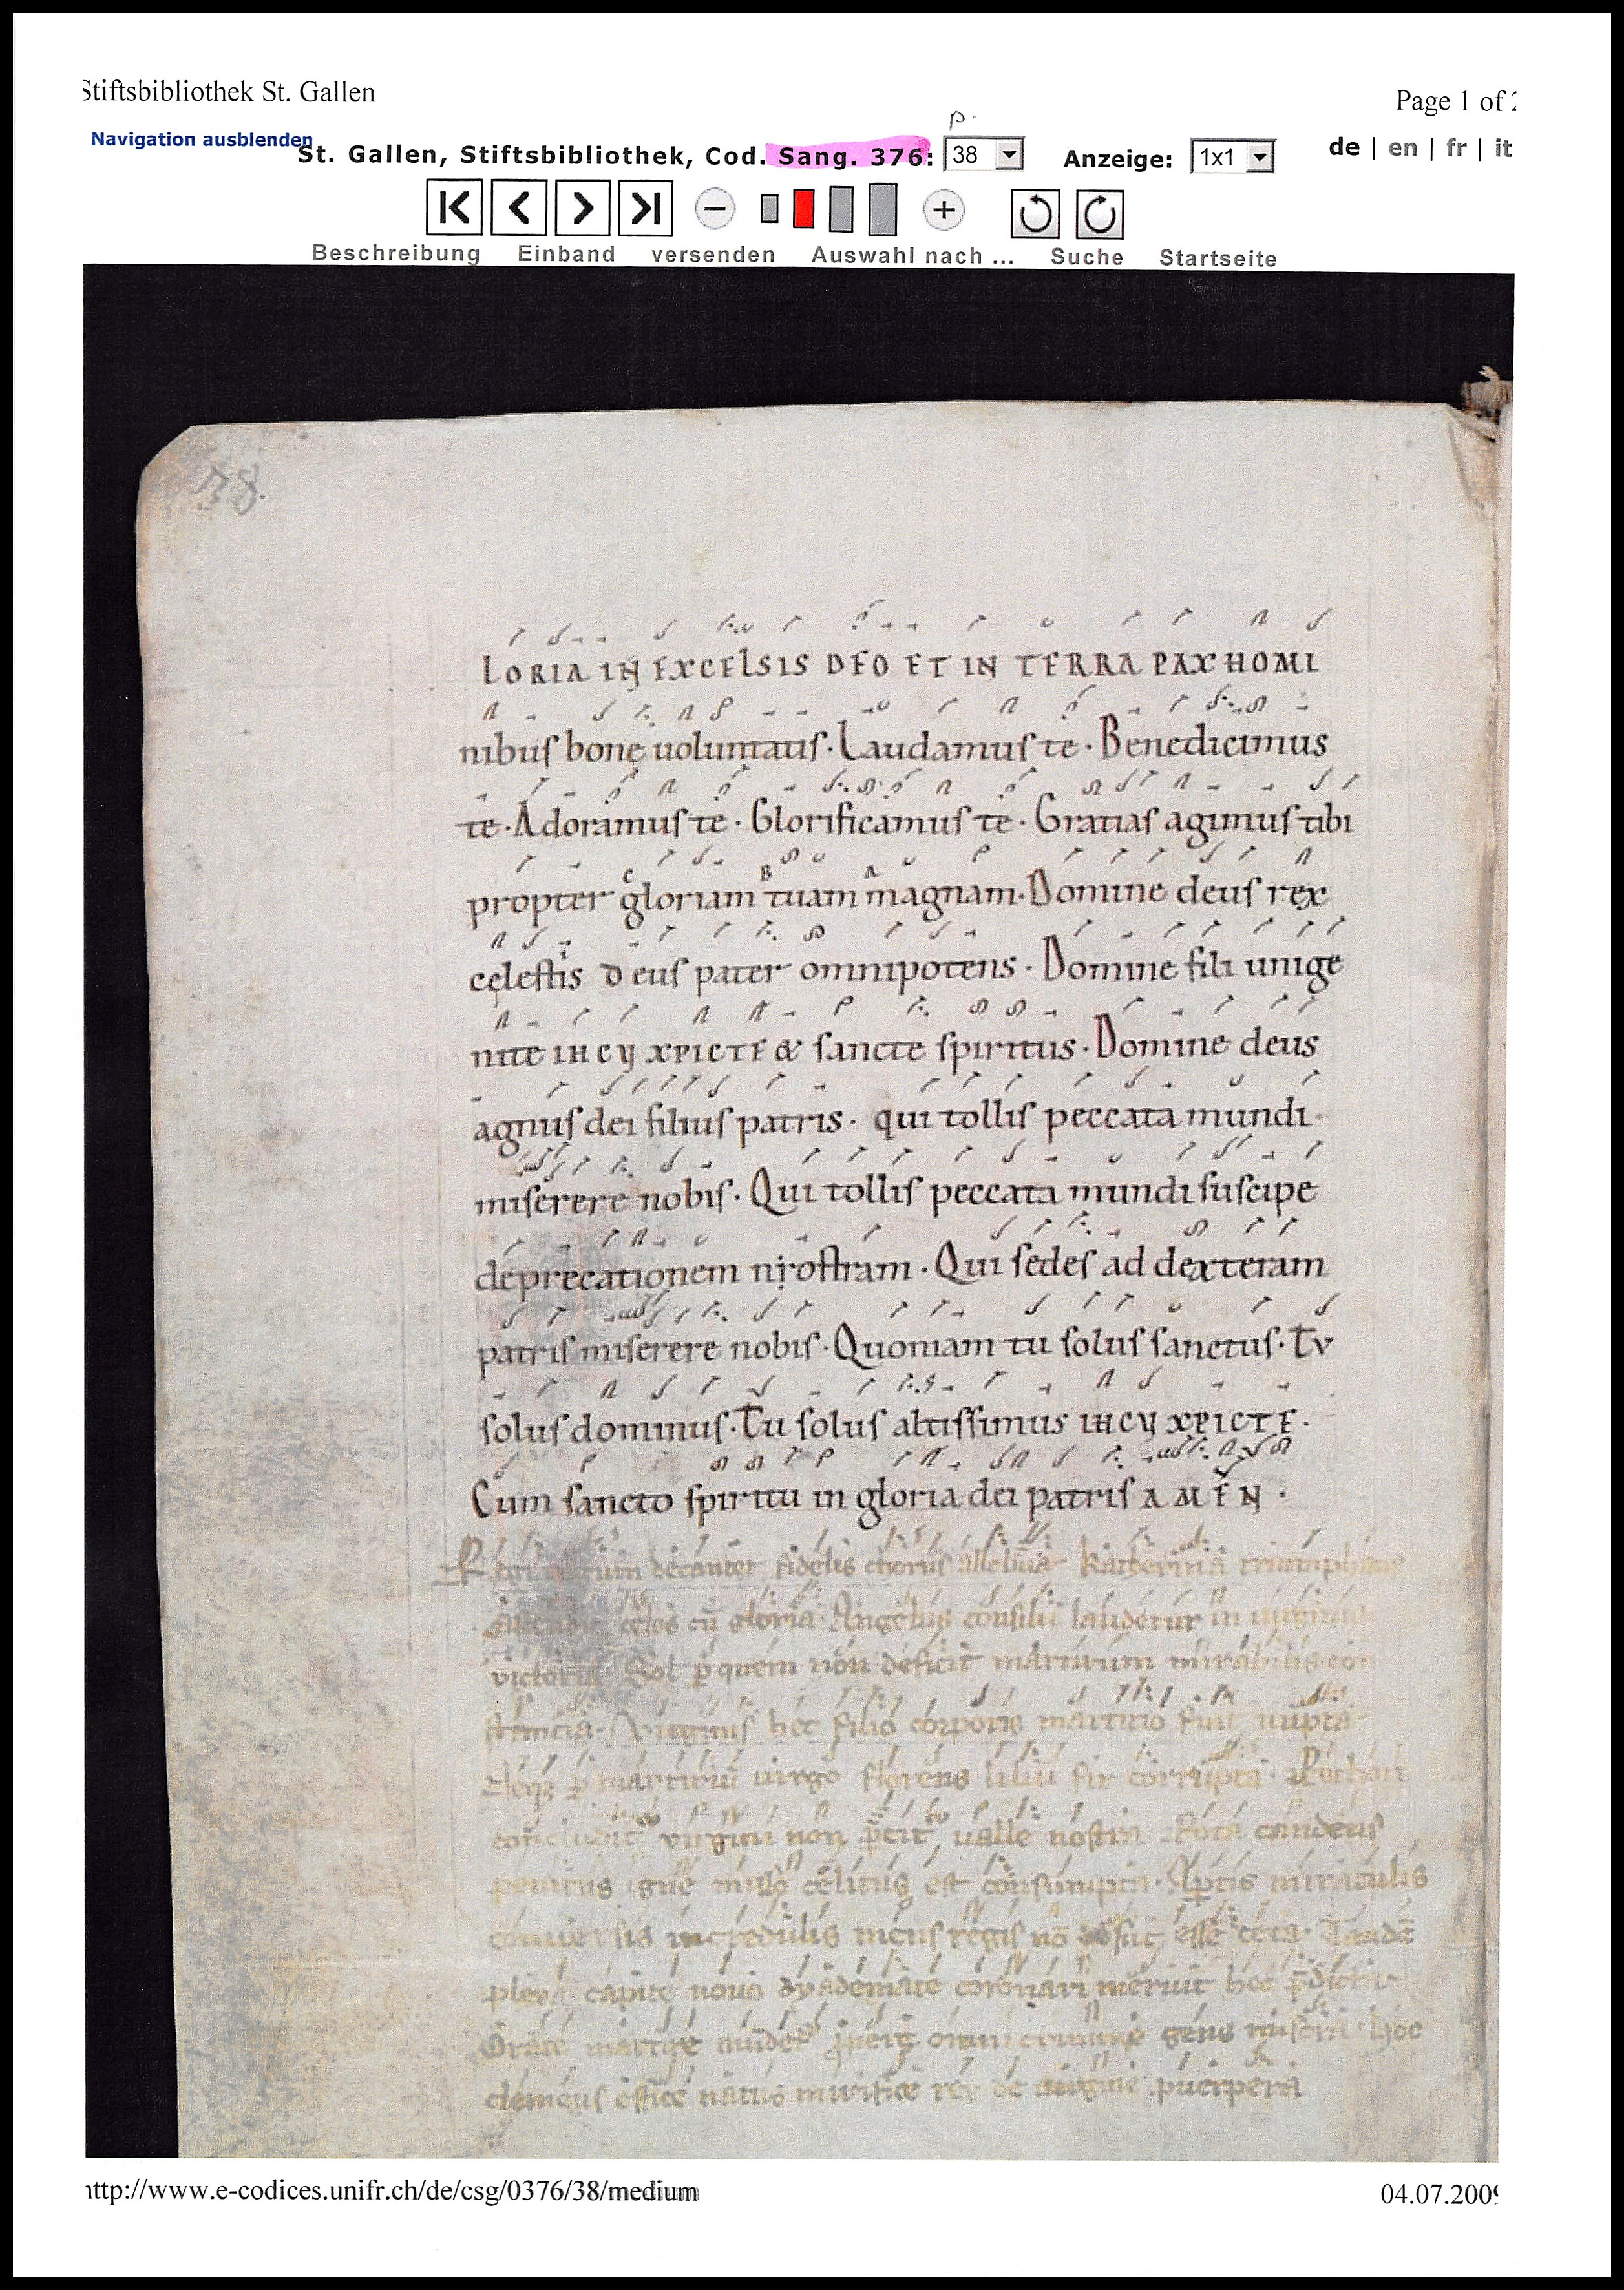 Stiftsbibliothek St. Gallen
Page 1 of 2
Navigation ausblenden
p.
St. Gallen, Stiftsbibliothek, Cod. Sang. 376: 38 Anzeige: 1x1 de | en | fr | it
Beschreibung Einband versenden Auswahl nach ... Suche Startseite
38.
LORIA IN EXCELSIS DEO ET IN TERRA PAX HOMI
nibus bonę uoluntatis. Laudamus te. Benedicimus
te. Adoramus te. Glorificamus te. Gratias agimus tibi
c B A
propter gloriam tuam magnam. Domine deus rex
cęlestis deus pater omnipotens. Domine fili unige
nite IHCY XPICTE & sancte spiritus. Domine deus
agnus dei filius patris. qui tollis peccata mundi.
miserere nobis. Qui tollis peccata mundi suscipe
deprecationem nrostram. Qui sedes ad dexteram
patris miserere nobis. Quoniam tu solus sanctus. Tv
solus dominus. Tu solus altissimus IHCY XPICTE.
Cum sancto spiritu in gloria dei patris AMEN.
decantet fidelis chorus alleluia Katherina
celos cū gloria. Angelus consilii laudetur in
victoria. Sol ꝑ quem non deficit martirum mirabilis con
stancia. hec filio corporis martirio fuit nupta
martiriū virgo florens liliū fit
virgini non ualle nostra
penitus igne misso celitus est consumpta. miraculis
incredulis regis nō esse ceca. Tandē
capite nouo dyademate coronari meruit hec
Orate omni crimine gens misera hoc
clemens effice natus mirifice rex de puerpera
http://www.e-codices.unifr.ch/de/csg/0376/38/medium
04.07.2009